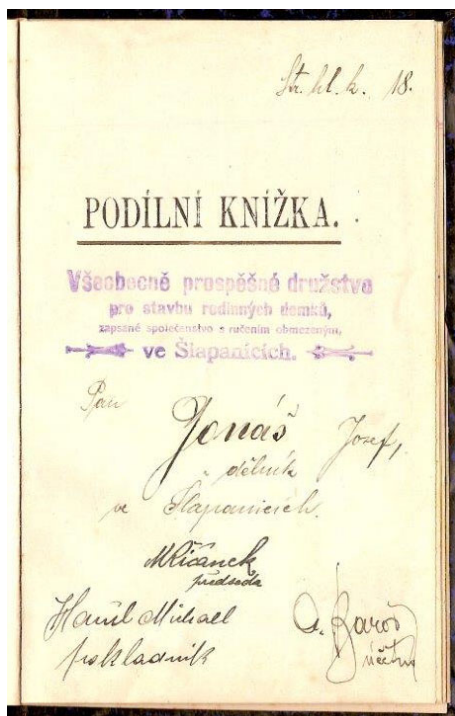 Str. hl. k. 18.
PODÍLNÍ KNÍŽKA.
Všeobecně prospěšné družstvo
pro stavbu rodinných domků,
zapsané společenstvo s ručením obmezeným,
ve Šlapanicích.
Pan
Jonáš Josef,
dělník
ve Šlapanicích.
předseda
Michael
pokladník
účetní